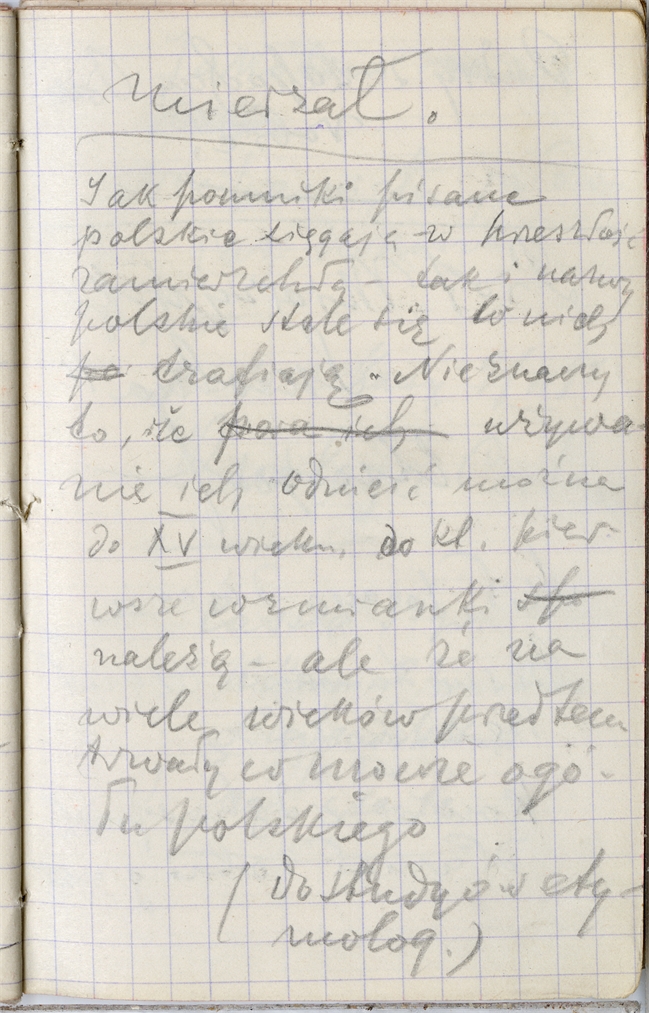 Mierzał.
Jak pomniki pisane
polskie sięgają w przeszłość
zamierzchłą – tak i nazwy
polskie stale się w nich
po trafiają. Nie znaczy
to, że ich używa-
nie ich odnieść można
do XV wieku, do kt. pier-
wsze wzmianki
należą – ale że na
wiele wieków przedtem
trwały w mowie ogó-
łu polskiego
(do studyów ety-
molog.)